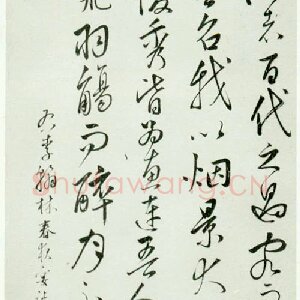 者百代之過客
召我以烟景大
俊秀皆為惠連吾人
飛羽觴而醉月
右李翰林春夜宴
Shufawang.CN